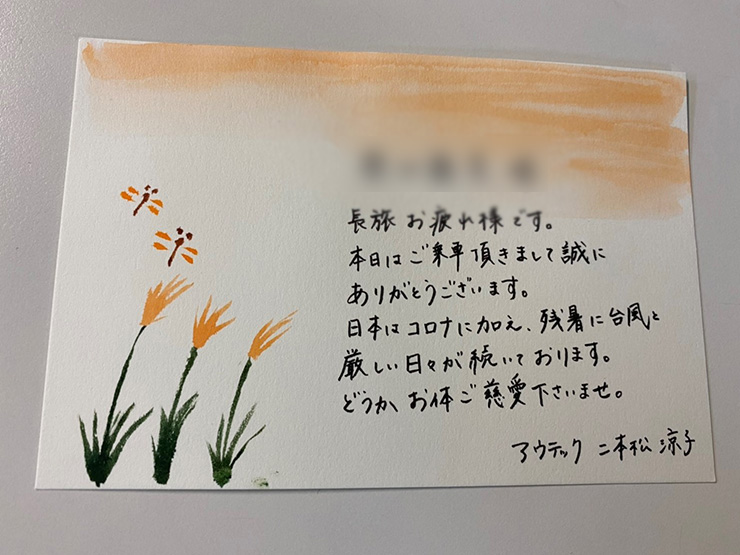 長旅お疲れ様です。
本日はご乗車頂きまして誠に
ありがとうございます。
日本はコロナに加え、残暑に台風と
厳しい日々が続いております。
どうか、お体ご慈愛下さいませ。
アウテック 二本松 涼子